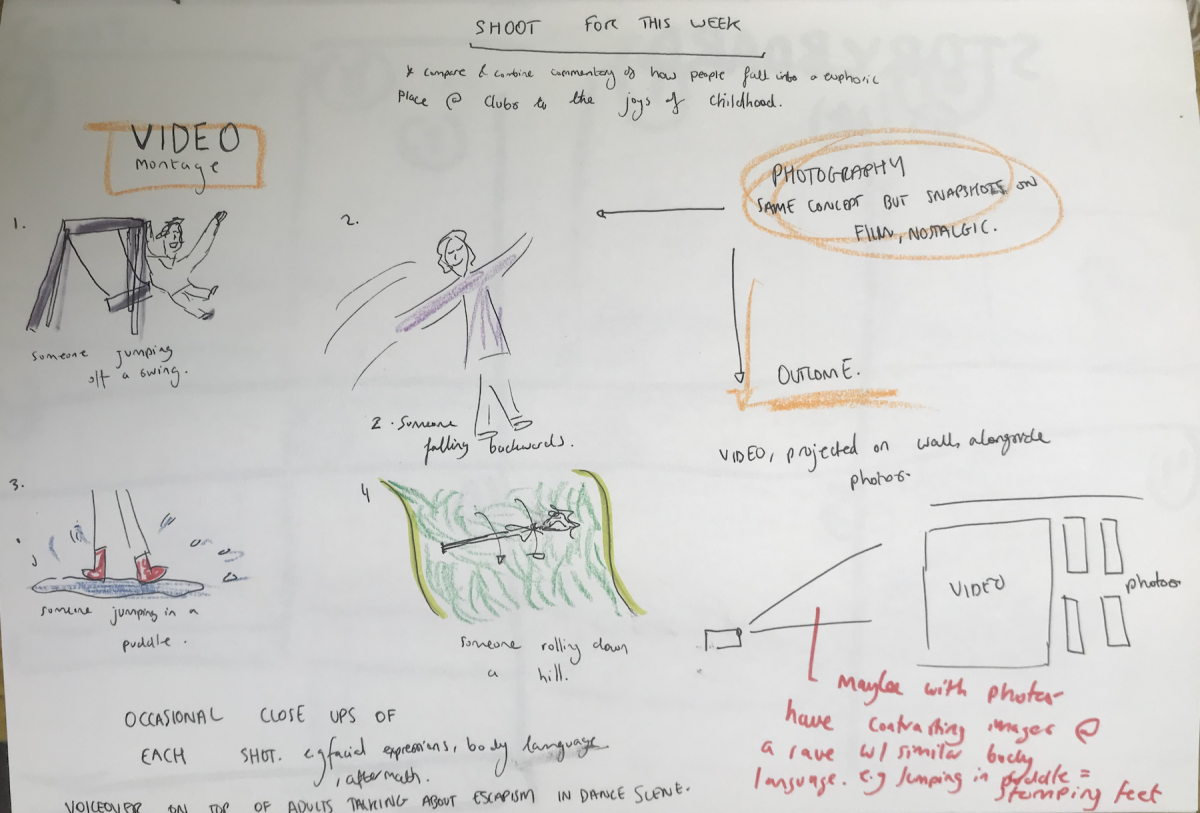 SHOOT FOR THIS WEEK
* compare & combine commentary of how people fall into a euphoric
place @ clubs to the joys of childhood.
VIDEO
montage
PHOTOGRAPHY
SAME CONCEPT BUT SNAPSHOTS ON
FILM, NOSTALGIC.
1.
someone jumping
off a swing.
2.
2. Someone
falling backwards.
OUTCOME.
VIDEO, projected on wall, alongside
photos.
3.
someone jumping in a
puddle.
4
someone rolling down
a hill.
VIDEO
photos
Maybe with photos
have contrasting images @
a rave w/ similar body
language. e.g Jumping in puddle =
stomping feet
OCCASIONAL CLOSE UPS OF
EACH SHOT. e.g facial expressions, body language
, aftermath.
VOICEOVER ON TOP OF ADULTS TALKING ABOUT ESCAPISM IN DANCE SCENE.